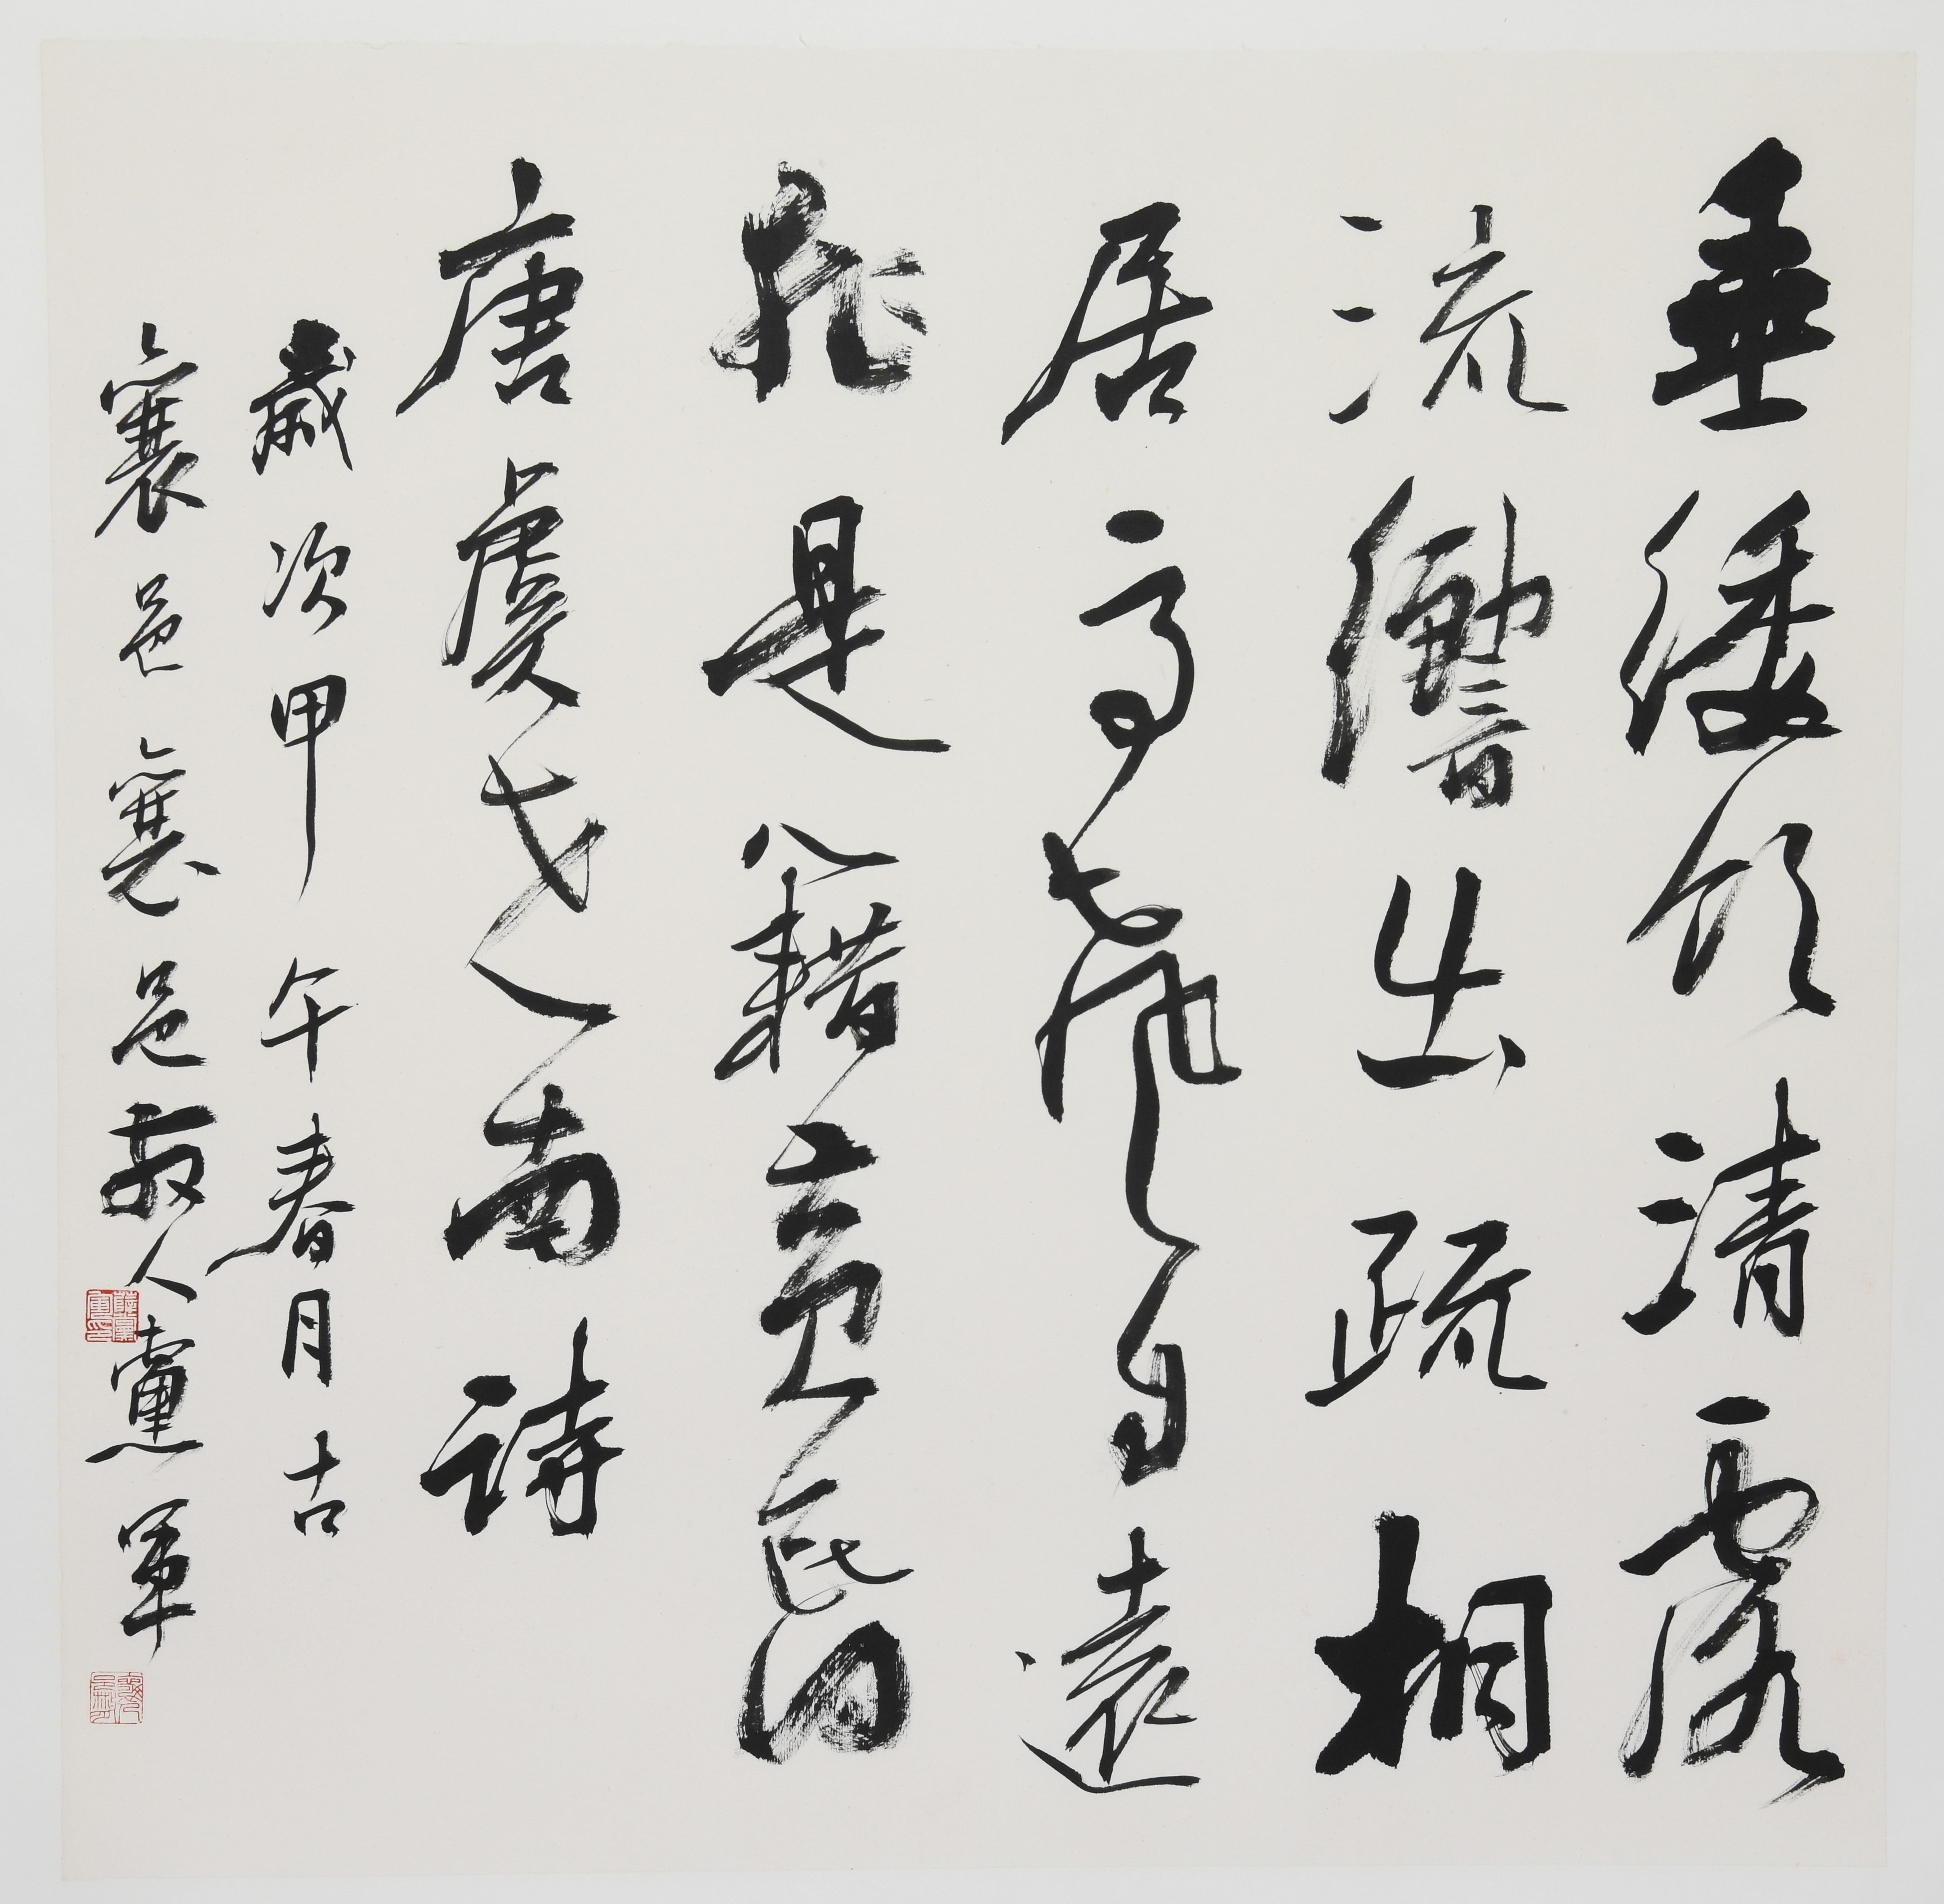 垂緌飲清露
流響出疏桐
居高聲自遠
非是籍
唐虞世南詩
歲次甲午春月古
襄邑襄邑散人黨軍